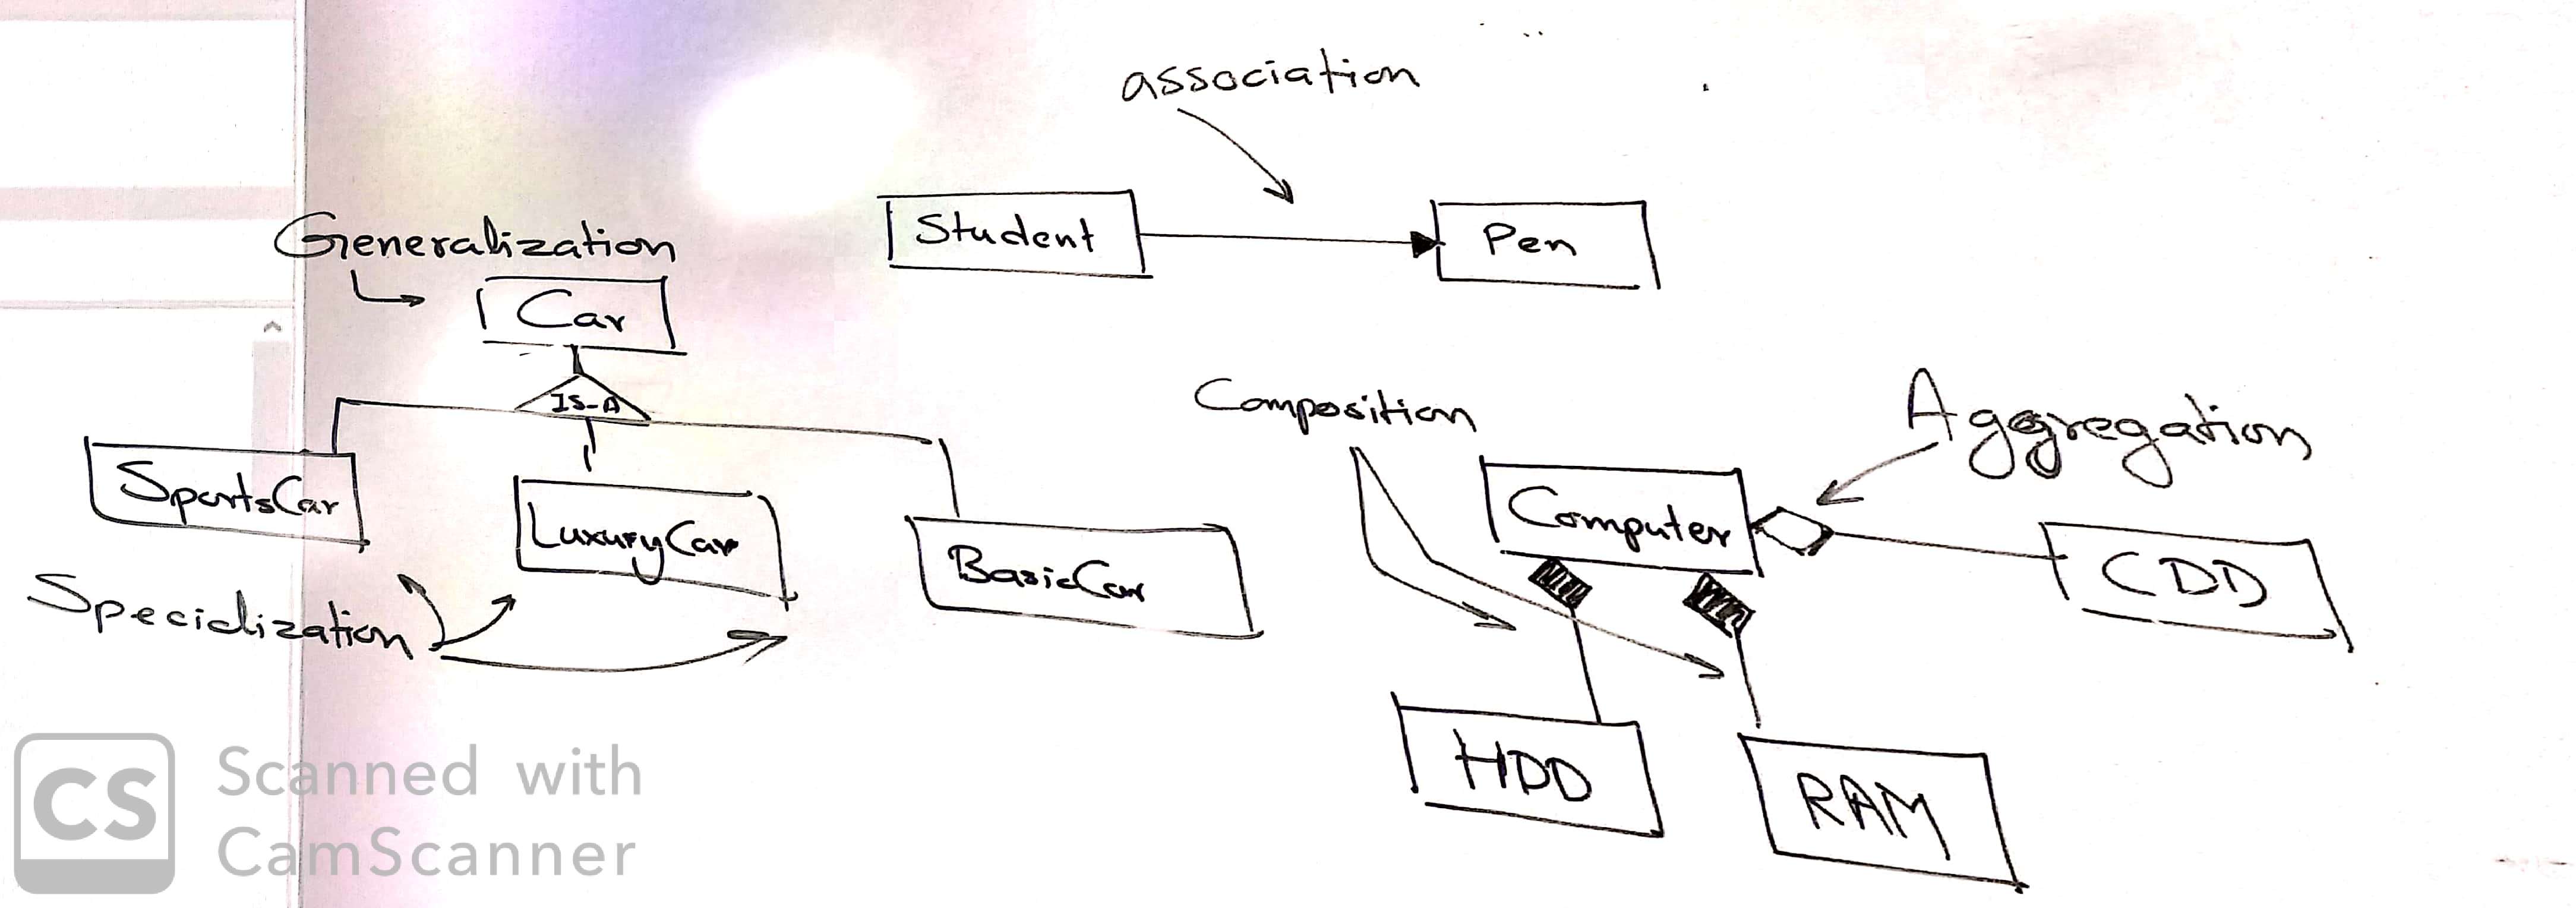 association
Student
Pen
Generalization
Car
IS-A
SportsCar
LuxuryCar
BasicCar
Specialization
Composition
Aggregation
Computer
CDD
HDD
RAM
CS
Scanned with
CamScanner